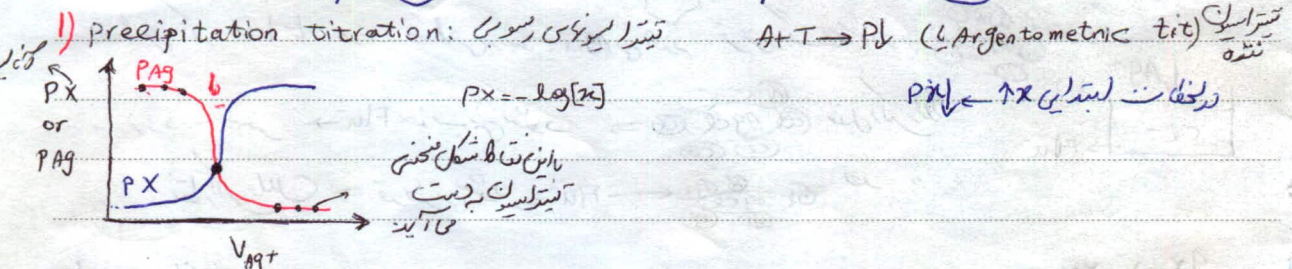 1) Precipitation titration: تیتراسیونهای رسوبی A+T → P↓ (یا Argentometric tit) تیتراسیون نقره
PAg
PX
or
PAg
PX
V Ag+
PX = -log[x]
با این نقاط شکل منحنی
تیتراسیون به دست
می آید
در لحظات ابتدایی x↑ → PX↓